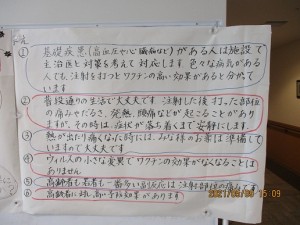 ① 基礎疾患(高血圧や心臓病など)がある人は施設で
主治医と対策を考えて対応します。色々な病気がある
人でも、注射を打つとワクチンの高い効果があると分かって
います
② 普段通りの生活で大丈夫です。注射した後、打った部位
の痛みやだるさ、発熱、頭痛などが起こることがあり
ますが、その時は症状が落ち着くまで安静にします。
③ 熱が出たり痛くなった時には、みな様のお薬は準備して
いますので大丈夫です
④ ウィルスの小さな変異でワクチンの効果がなくなることは
ありません
⑤ 高齢者も若者も一番多い副反応は注射部位の痛みです
⑥ 高齢者に対し高い予防効果があります
2021/06/09 15:09